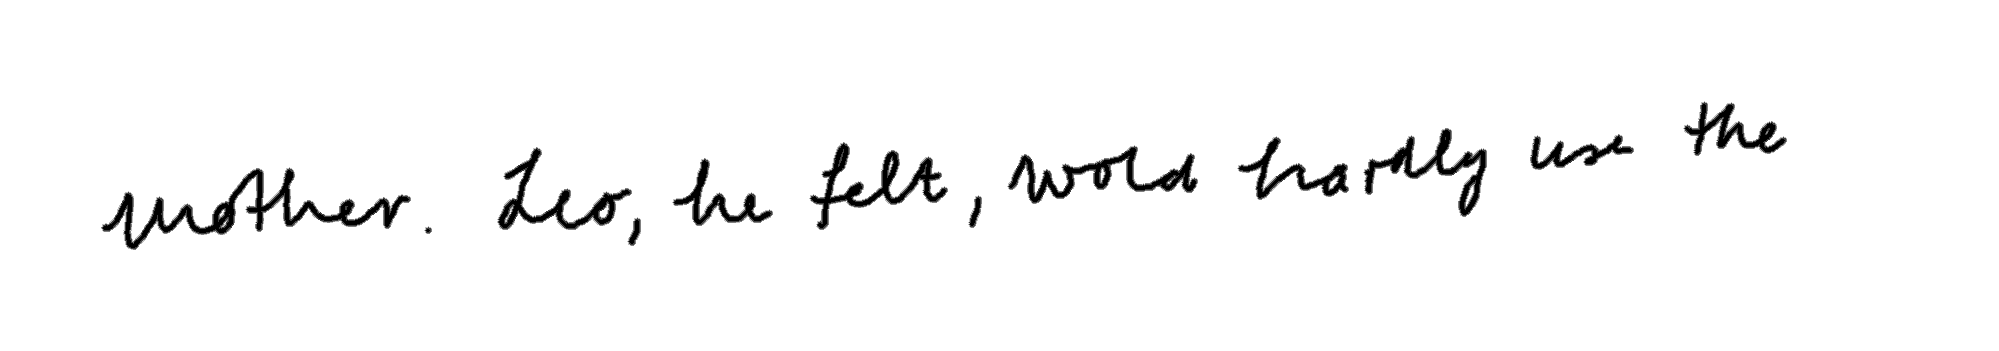 mother. Leo, he felt, wold hardly use the